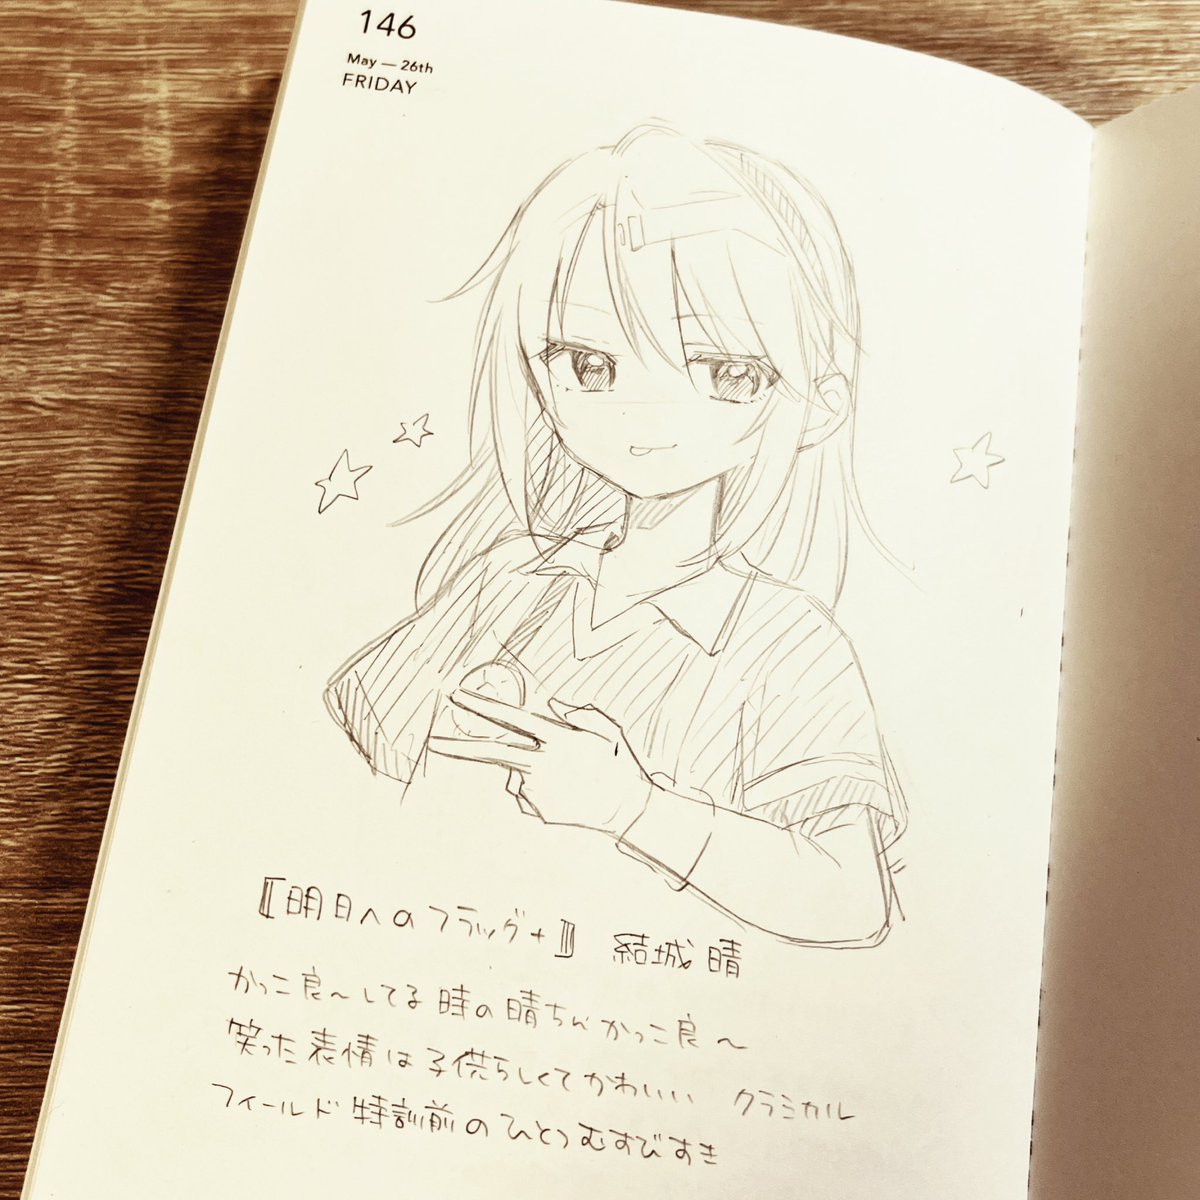 146
May — 26th
FRIDAY
〖明日へのフラッグ+〗 結城 晴
かっこ良〜してる時の晴ちんかっこ良〜
笑った表情は子供らしくてかわいい クラシカル
フィールド特訓前のひとつむすびすき